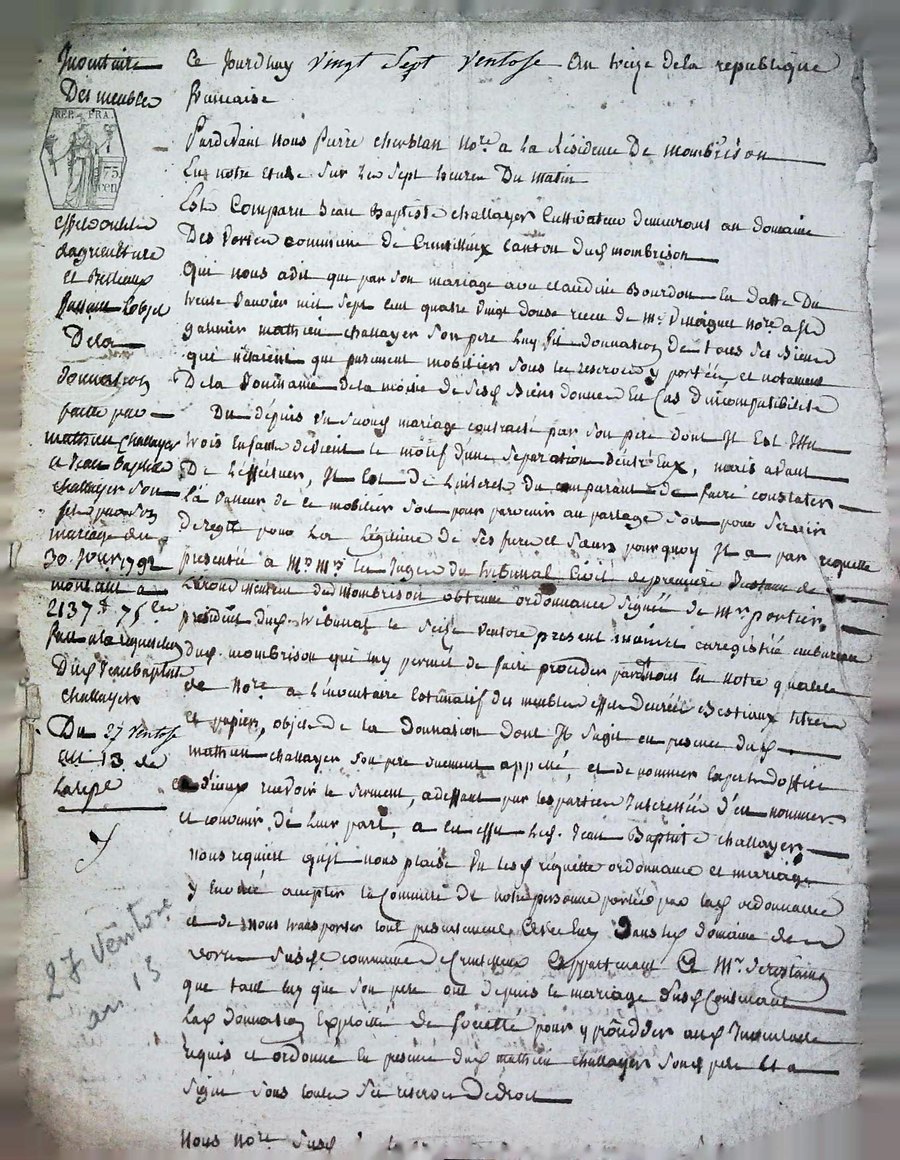 Inventaire
Des meubles
REP. FRA.
75
cen
effets outils
dagriculture
et Bestiaux
faisant l'objet
De la
donnation
faitte par
mathieu Challayer
a Jean Baptiste
challayer son
fils par son
mariage du
30. Jer 1792
montant a
2137 75
fait a la requete du
Dit Jean baptiste
challayer
Du 27 Ventose
an 13 de
La rep
27 Ventose
an 13
Ce jourdhuy vingt sept ventose an treize de la republique
francaise
Pardevant nous Pierre Cherblan nore a La Résidence De montbrison
En notre etude sur Les sept heures Du matin
Est Comparu Jean Baptiste challayer Cultivateur demeurant au domaine
Des commune de canton dud montbrison
Qui nous a dit que par son mariage avec claudine Bourdon En datte Du
trente Janvier mil sept cent quatre vingt douze recu de Mr nore a St
galmier mathieu challayer son pere luy fit donnation de tous ses Biens
qui n'étaient que purement mobiliers sous les reserves y portées et notament
De la de la moitié de ses Biens donnés En Cas d'incompatibilité
Du depuis un second mariage contracté par son pere dont Jl Est
trois Enfants devient le motif d'une séparation d'entr'Eux, mais avant
De L'effectuer, Jl Est de L'interet du comparant de faire constater
La valeur de ce mobilier soit pour parvenir au partage soit pour servir
de regle pour La Légitime de ses freres et sœurs pourquoy Jl a par requette
presentée a Mrs Les Juges du tribunal Civil de premiere Instance de
L'arondissement de montbrison obtenu ordonnance signée de Mr portier
président dud. tribunal le seize Ventose present mois enregistrée au bureau
dud. montbrison qui luy permet de faire proceder pardt nous En notre qualité
de nore a L'inventaire Estimatif des meubles effets denrées Bestiaux titres
Et papiers, objet de La Donnation dont Jl s'agit en presence dud
mathieu challayer son pere duement appellé, et de nommer Experts d'office
et d'iceux recevoir le serment, a deffaut par les parties Interessées d'en nommer
et convenir de leur part, a cet effet Led. Jean Baptiste challayer
nous requiert qu'jl nous plaise Vu les d requette ordonnance et mariage
y enoncé accepter la Commission de notre personne portée par lad ordonnance
et de nous transporter tout presentement Dans led domaine de
sus d commune appartenant a Mr
que tant luy que son pere ont depuis le mariage susd Contenant
Lad donnation Exploité de société pour y proceder aud Inventaire
requis et ordonné En presence dud mathieu challayer son pere Et a
signé sous toutes ses reserves De droit
Nous Nore susd